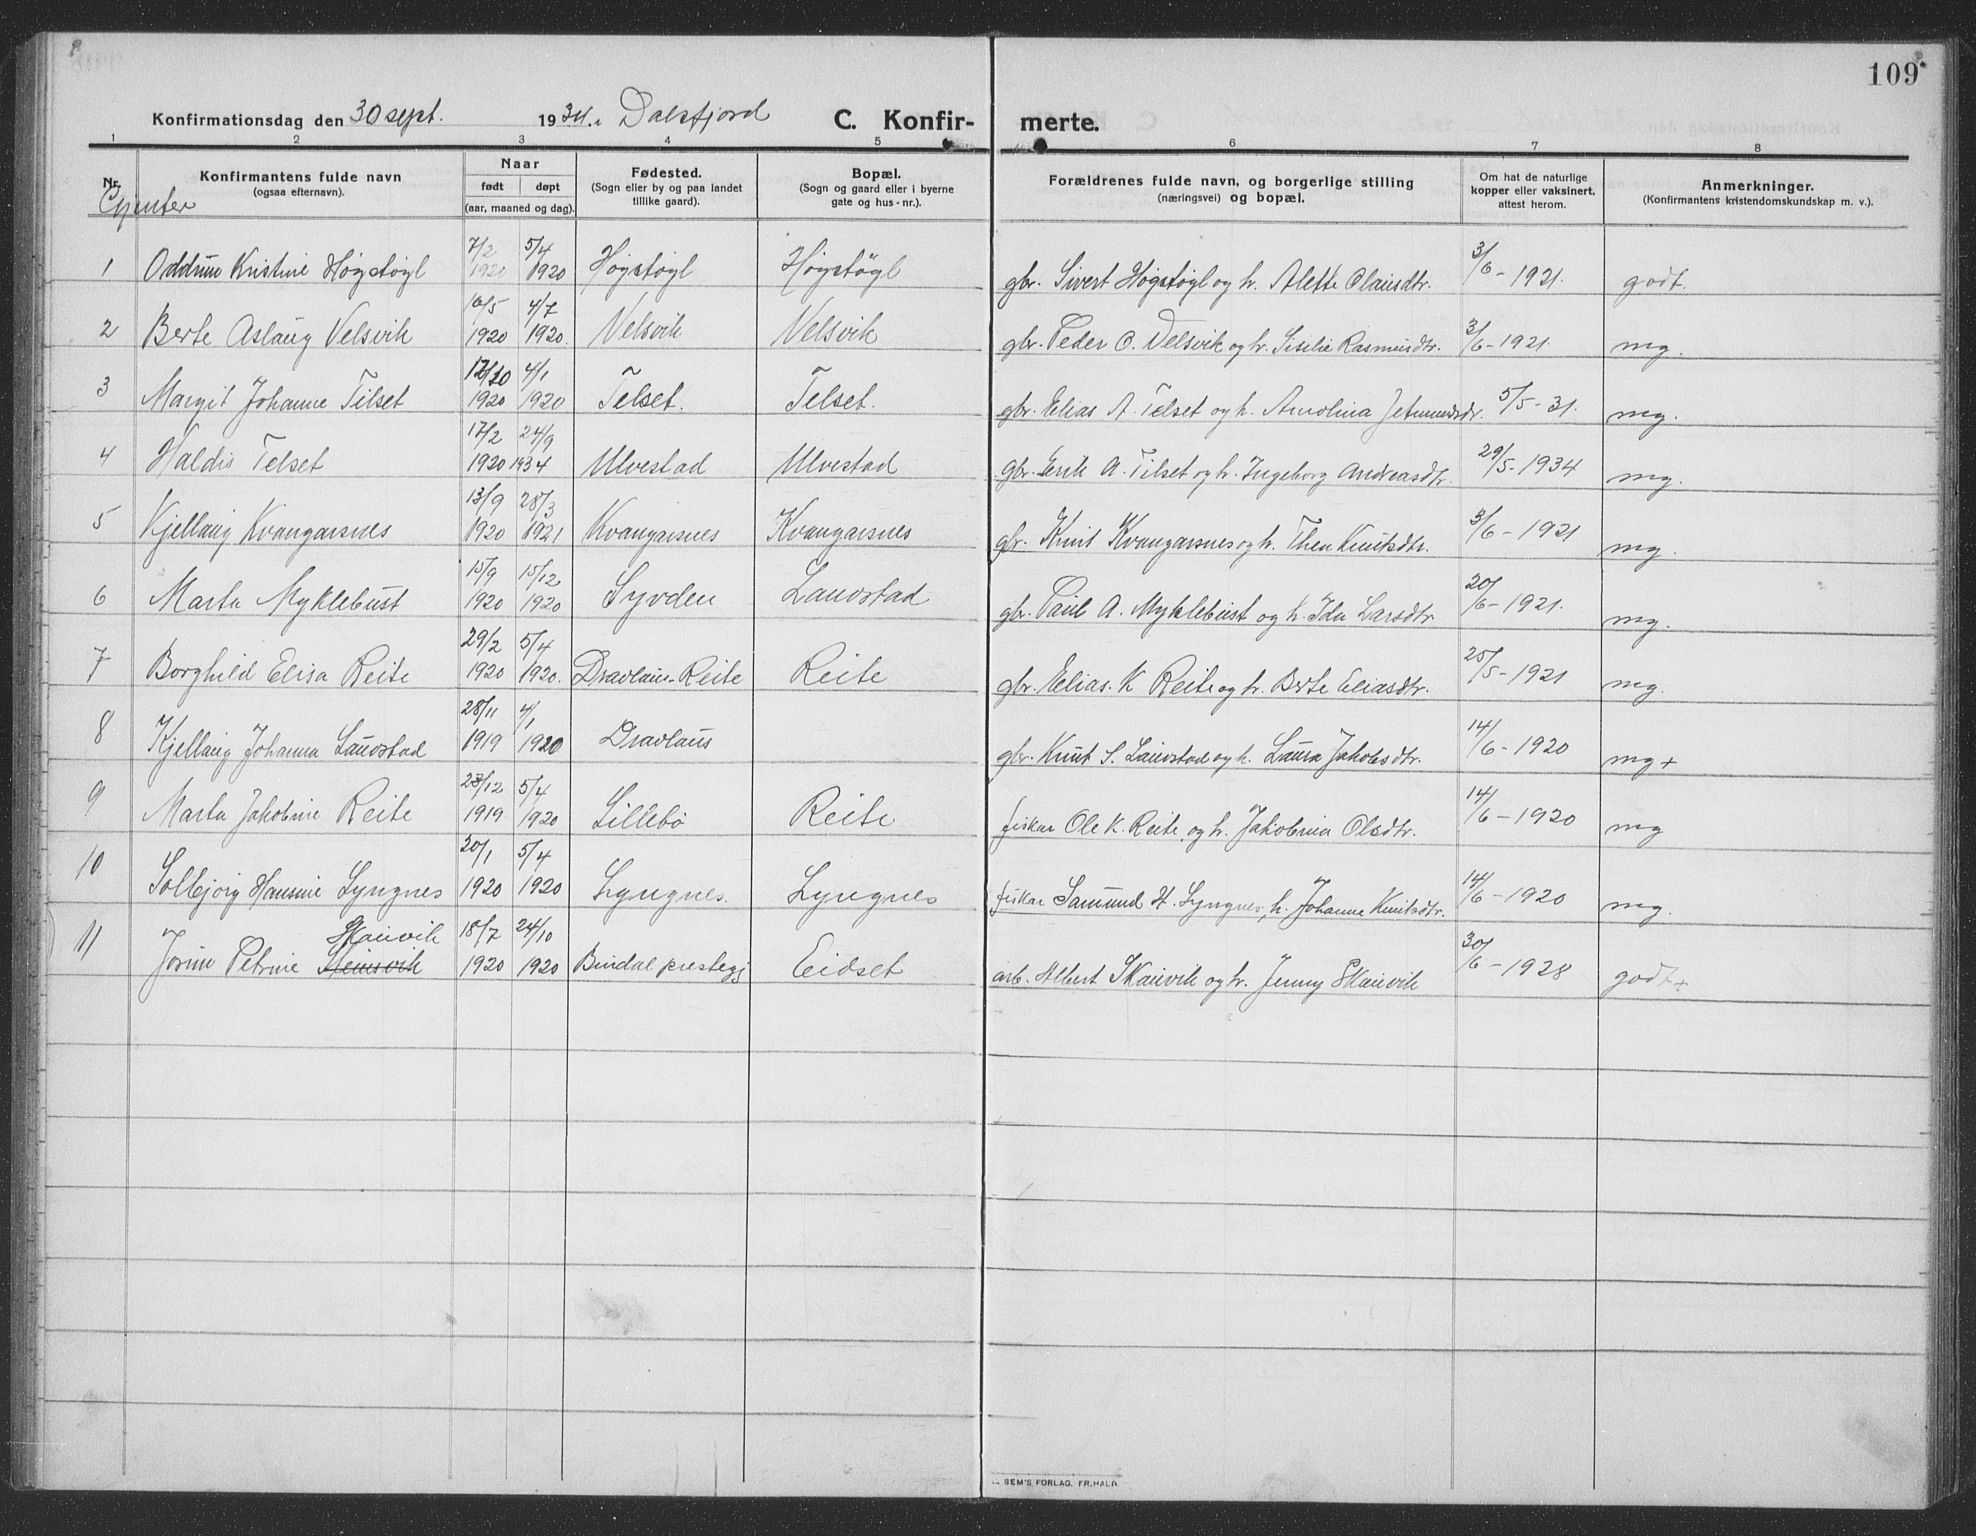 109
Konfirmationsdag den 30 sept. 1934 i Dalsfjord C. Konfir- merte.
1 2 3 4 5 6 7 8
Nr. Konfirmantens fulde navn (ogsaa efternavn). Naar født døpt (aar, maaned og dag). Fødested. (Sogn eller by og paa landet tillike gaard). Bopæl. (Sogn og gaard eller i byerne gate og hus-nr.). Forældrenes fulde navn, og borgerlige stilling (næringsvei) og bopæl. Om hat de naturlige kopper eller vaksinert, attest herom. Anmerkninger. (Konfirmantens kristendomskundskap m. v.).
Gjenter
1 Oddrun Kristine Høgstøyl 7/2 1920 5/4 1920 Høgstøyl Høgstøyl gbr. Sivert Høgstøyl og h. Alette Olausdtr. 3/6-1921. godt.
2 Berte Aslaug Velsvik 16/5 1920 4/7 1920. Velsvik Velsvik gbr. Peder O. Velsvik og h. Sisilie Rasmusdtr. 3/6-1921. mg.
3 Margit Johanne Tilset 1920 4/1 1920 Telset. Telset. gbr. Elias A. Telset og h. Amolina Jetmundsdr. 5/5-31. mg.
4 Haldis Telset 17/2 1920 24/9 1934 Ulvestad Ulvestad gbr. Erik A. Tilset og h. Ingeborg Andreasdtr. 29/5-1934 mg.
5 Kjellaug Kvangarsnes 13/9 1920 28/3 1921 Kvangarsnes Kvangarsnes gbr. Knut Kvangarsnes og h. Thea Knutsdtr. 3/6-1921 mg.
6 Marta Myklebust 15/9 1920 15/12 1920 Syvden Lauvstad gbr. Paul A. Myklebust og h. Ida Larsdtr 20/6-1921. mg.
7 Borghild Elisa Reite 29/2 1920 5/4 1920. Dravlaus-Reite Reite gbr. Elias K Reite og h. Berte Eliasdtr. 25/5-1921 mg.
8 Kjellaug Johanna Lauvstad 28/11 1919 4/1 1920 Dravlaus gbr. Knut S. Lauvstad og h. Laura Jakobsdtr. 14/6-1920 mg+
9 Marta Jakobine Reite 23/12 1919 5/4 1920 Lillebø Reite fiskar Ole K. Reite, og h. Jakobina Olsdtr. 14/6-1920 mg
10 Solbjørg Hansine Lyngnes 20/1 1920 5/4 1920 Lyngnes. Lyngnes fiskar Samund H. Lyngnes, h. Johanne Knutsdtr. 14/6-1920 mg.
11 Jorun Petrine Skauvik 18/7 1920 24/10 1920 Bindal prestegj Eidset arb. Albert Skauvik og h. Jenny Skauvik 30/6-1928 godt+
SEM'S FORLAG. FR.HALD.